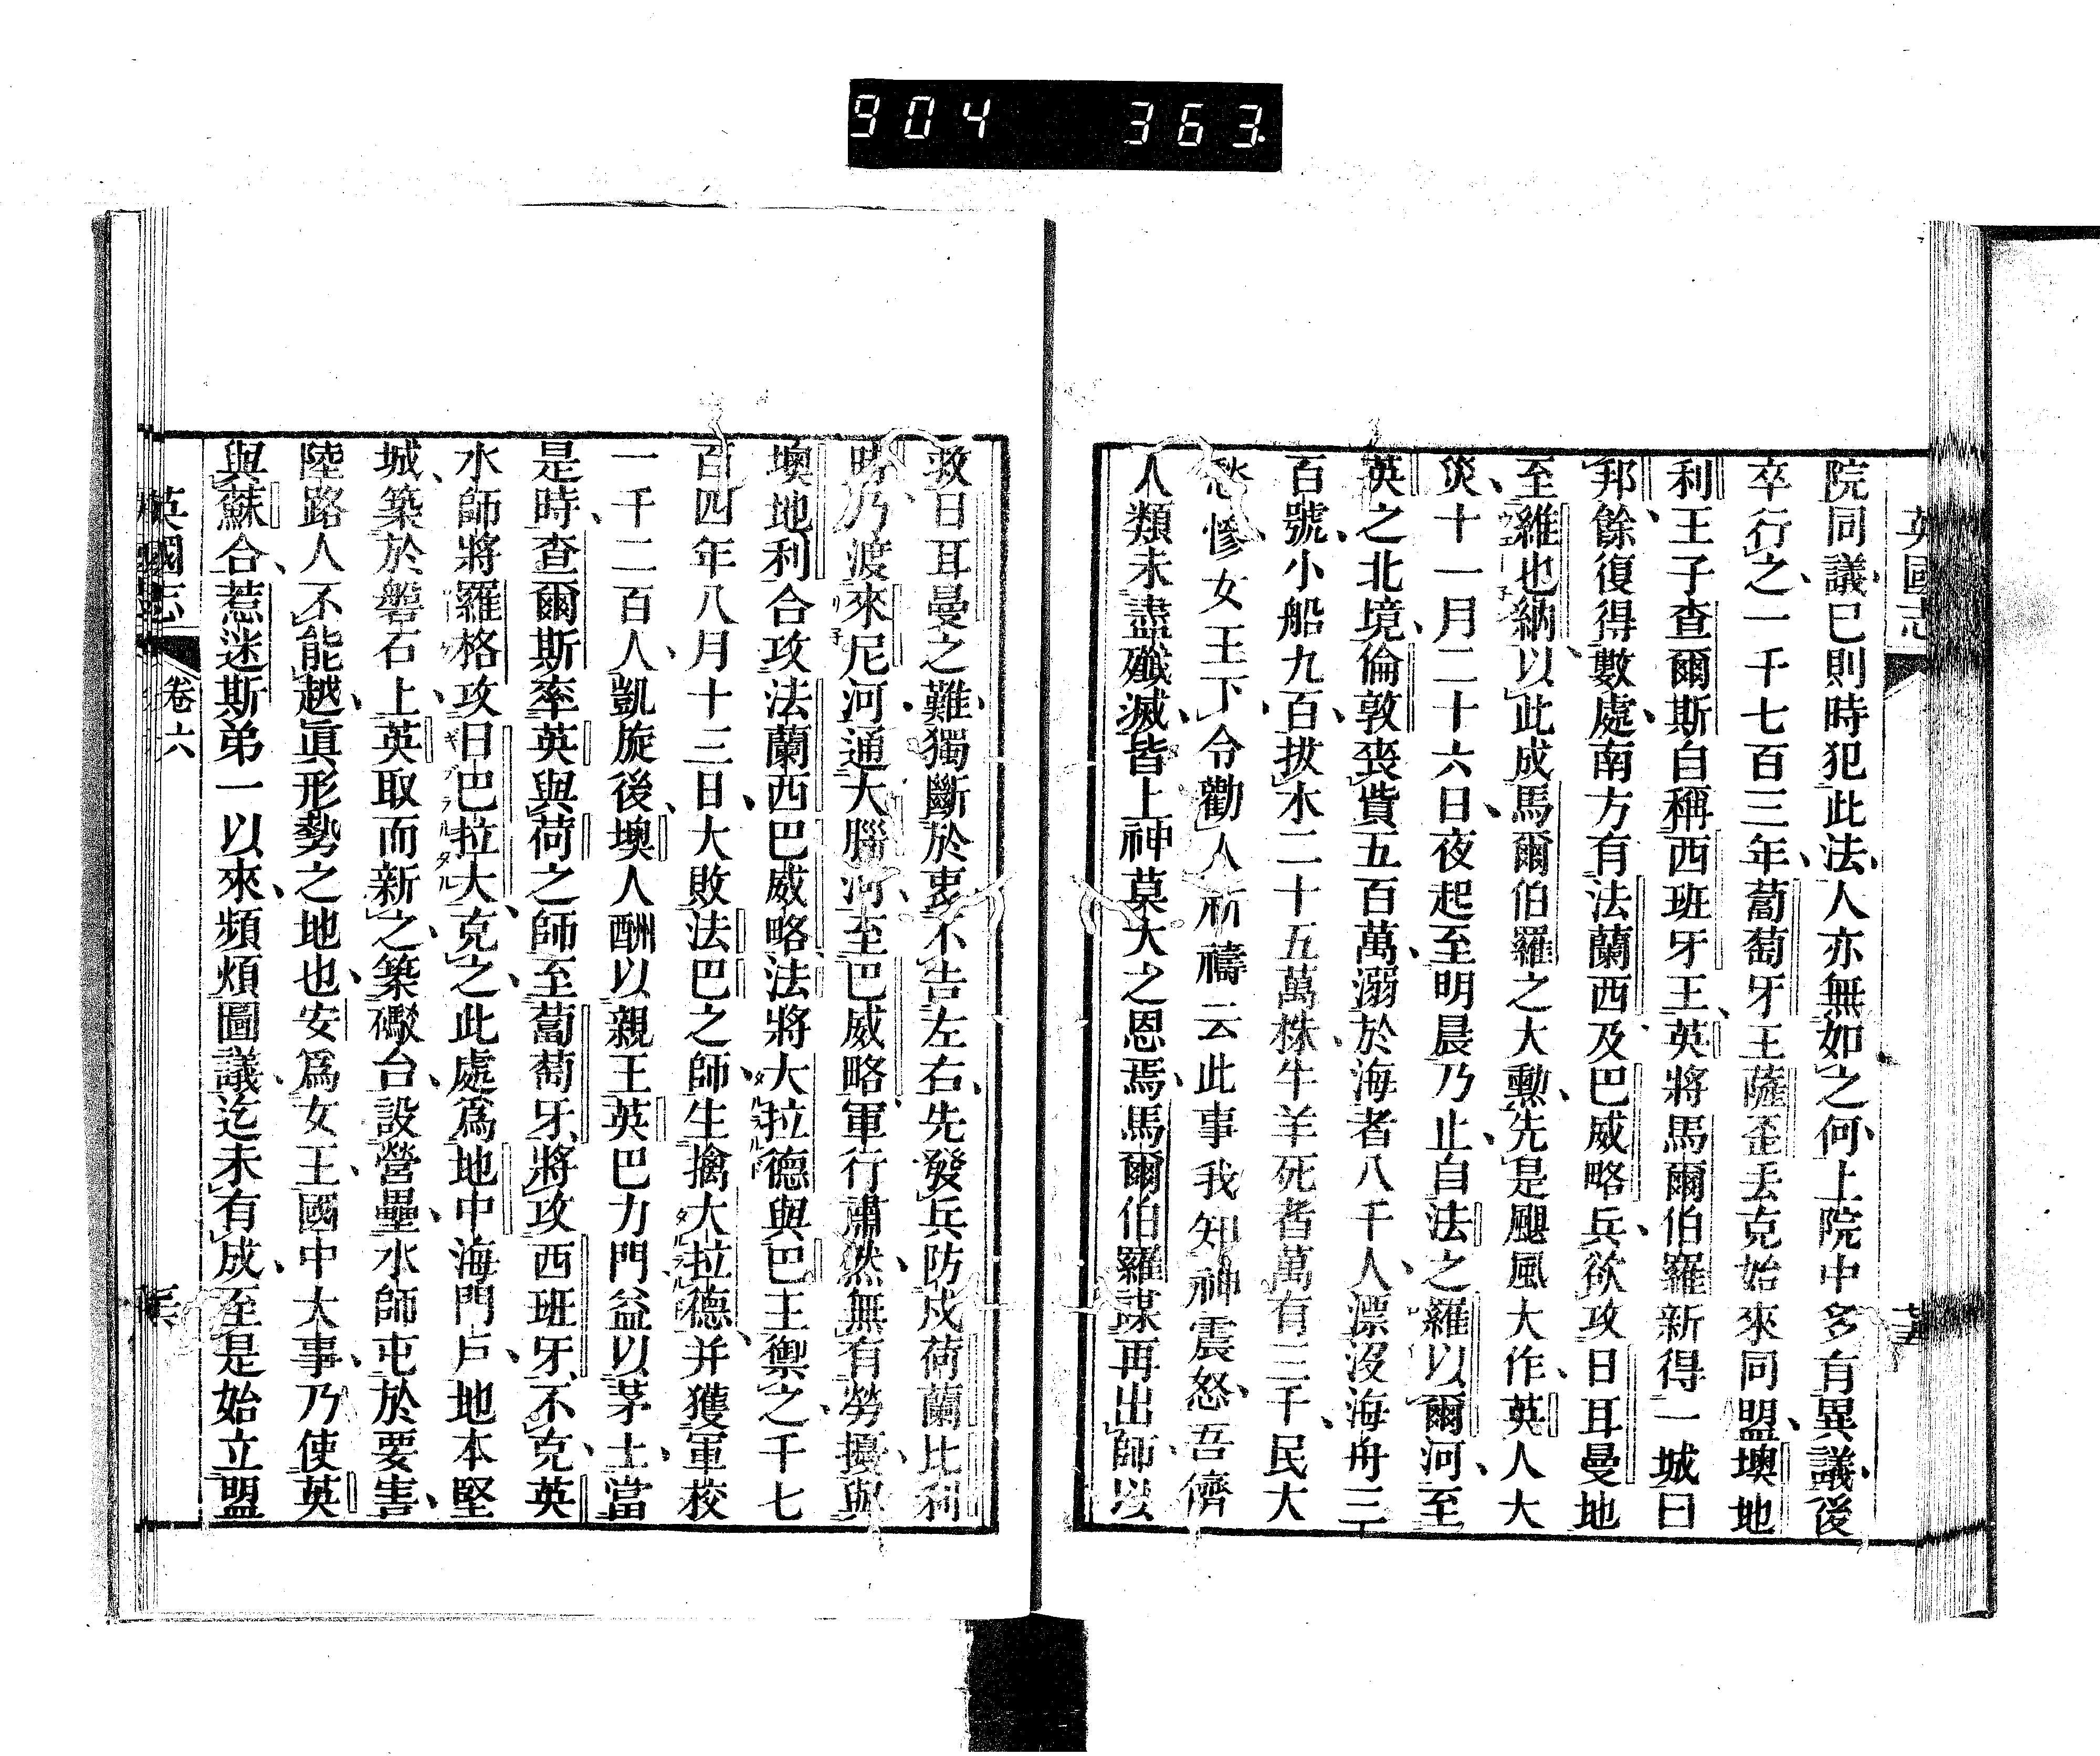 904 363
英國志
院同議已則時犯此法人亦無如之何上院中多有異議後
卒行之一千七百三年葡萄牙王薩歪丟克始來同盟墺地
利王子査爾斯自稱西班牙王英將馬爾伯羅新得一城曰
邦餘復得數處南方有法蘭西及巴威略兵欲攻日耳曼地
至維也納以此成馬爾伯羅之大勲先是颶風大作英人大
災十一月二十六日夜起至明晨乃止自法之羅以爾河至
英之北境倫敦喪貲五百萬溺於海者八千人漂沒海舟三
百號小船九百拔木二十五萬株牛羊死者萬有三千民大
愁慘女王下令勸人祈禱云此事我知神震怒吾儕
人類未盡殲滅皆上神莫大之恩焉馬爾伯羅謀再出師以
救日耳曼之難獨斷於衷不告左右先發兵防戍荷蘭比利
時乃渡來尼河通大腦河至巴威略軍行肅然無有勞擾與
墺地利合攻法蘭西巴威略法將大拉德與巴王禦之千七
百四年八月十三日大敗法巴之師生擒大拉德并獲軍校
一千二百人凱旋後墺人酬以親王英巴力門益以茅土當
是時査爾斯率英與荷之師至葡萄牙將攻西班牙不克英
水師將羅格攻日巴拉大克之此處爲地中海門戶地本堅
城築於磐石上英取而新之築礮台設營壘水師屯於要害
陸路人不能越眞形勢之地也安爲女王國中大事乃使英
與蘇合惹迷斯弟一以來頻煩圖議迄未有成至是始立盟
英國志 卷六